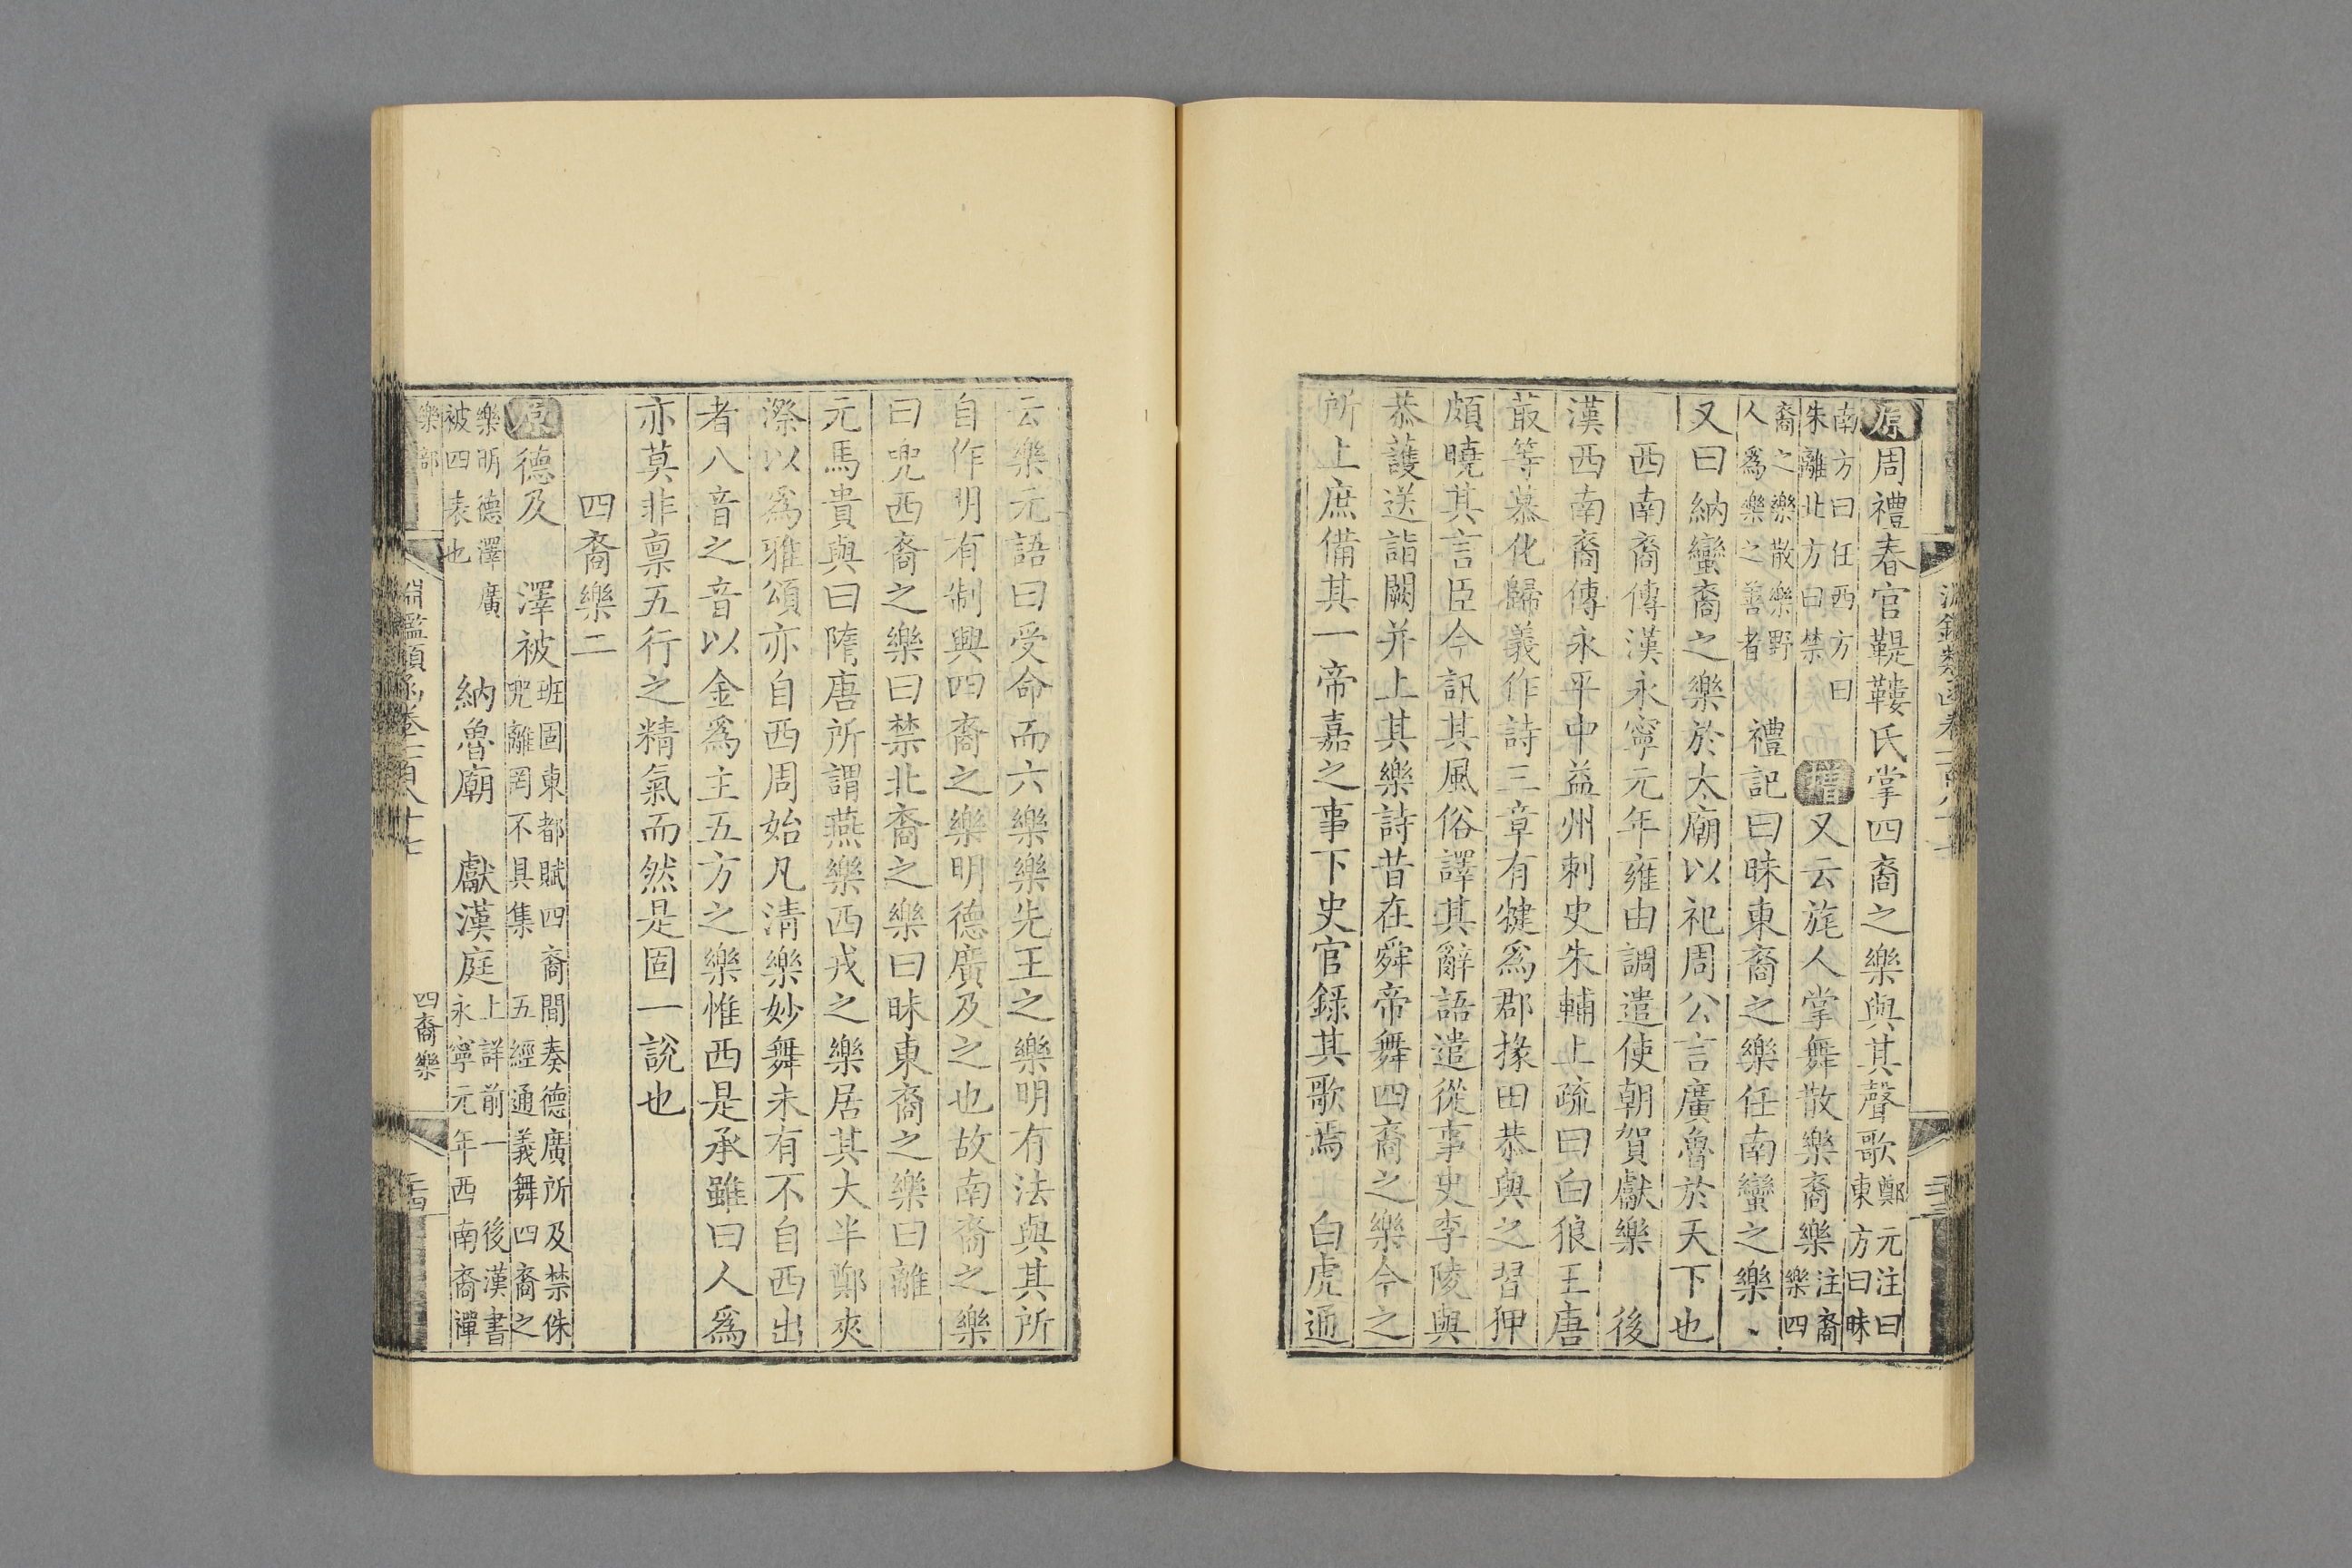 原周禮春官鞮鞻氏掌四裔之樂與其聲歌鄭元注曰東方曰昧
南方曰任西方曰朱離北方曰禁增又云旄人掌舞散樂裔樂注裔樂四
裔之樂散樂野人爲樂之善者禮記曰昧東裔之樂任南蠻之樂
又曰納蠻裔之樂於太廟以祀周公言廣魯於天下也
西南裔傳漢永寧元年雍由調遣使朝賀獻樂 後
漢西南裔傳永平中益州刺史朱輔上疏曰白狼王唐
菆等慕化歸義作詩三章有犍爲郡掾田恭與之習狎
頗曉其言臣今訊其風俗譯其辭語遣從事史李陵與
恭護送詣闕并上其樂詩昔在舜帝舞四裔之樂今之
所上庶備其一帝嘉之事下史官錄其歌焉 白虎通
云樂元語曰受命而六樂樂先王之樂明有法與其所
自作明有制興四裔之樂明德廣及之也故南裔之樂
曰兜西裔之樂曰禁北裔之樂曰昧東裔之樂曰離
元馬貴與曰隋唐所謂燕樂西戎之樂居其大半鄭夾
漈以爲雅頌亦自西周始凡清樂妙舞未有不自西出
者八音之音以金爲主五方之樂惟西是承雖曰人爲
亦莫非禀五行之精氣而然是固一說也
四裔樂二
原德及 澤被班固東都賦四裔間奏德廣所及禁侏兜離罔不具集 五經通義舞四裔之
樂明德澤廣被四表也 納魯廟 獻漢庭上詳前一 後漢書永寧元年西南裔禪
樂部
淵鑑類函卷一百八十七
四裔樂